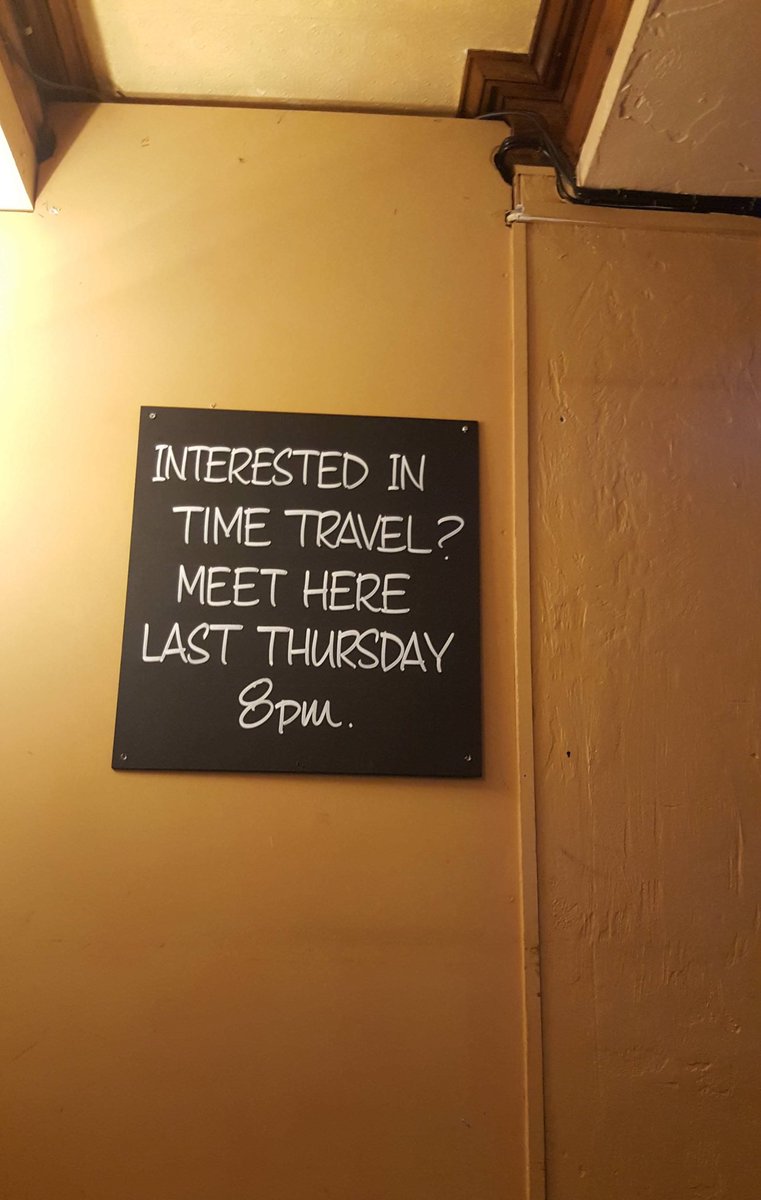 INTERESTED IN
TIME TRAVEL?
MEET HERE
LAST THURSDAY
8pm.